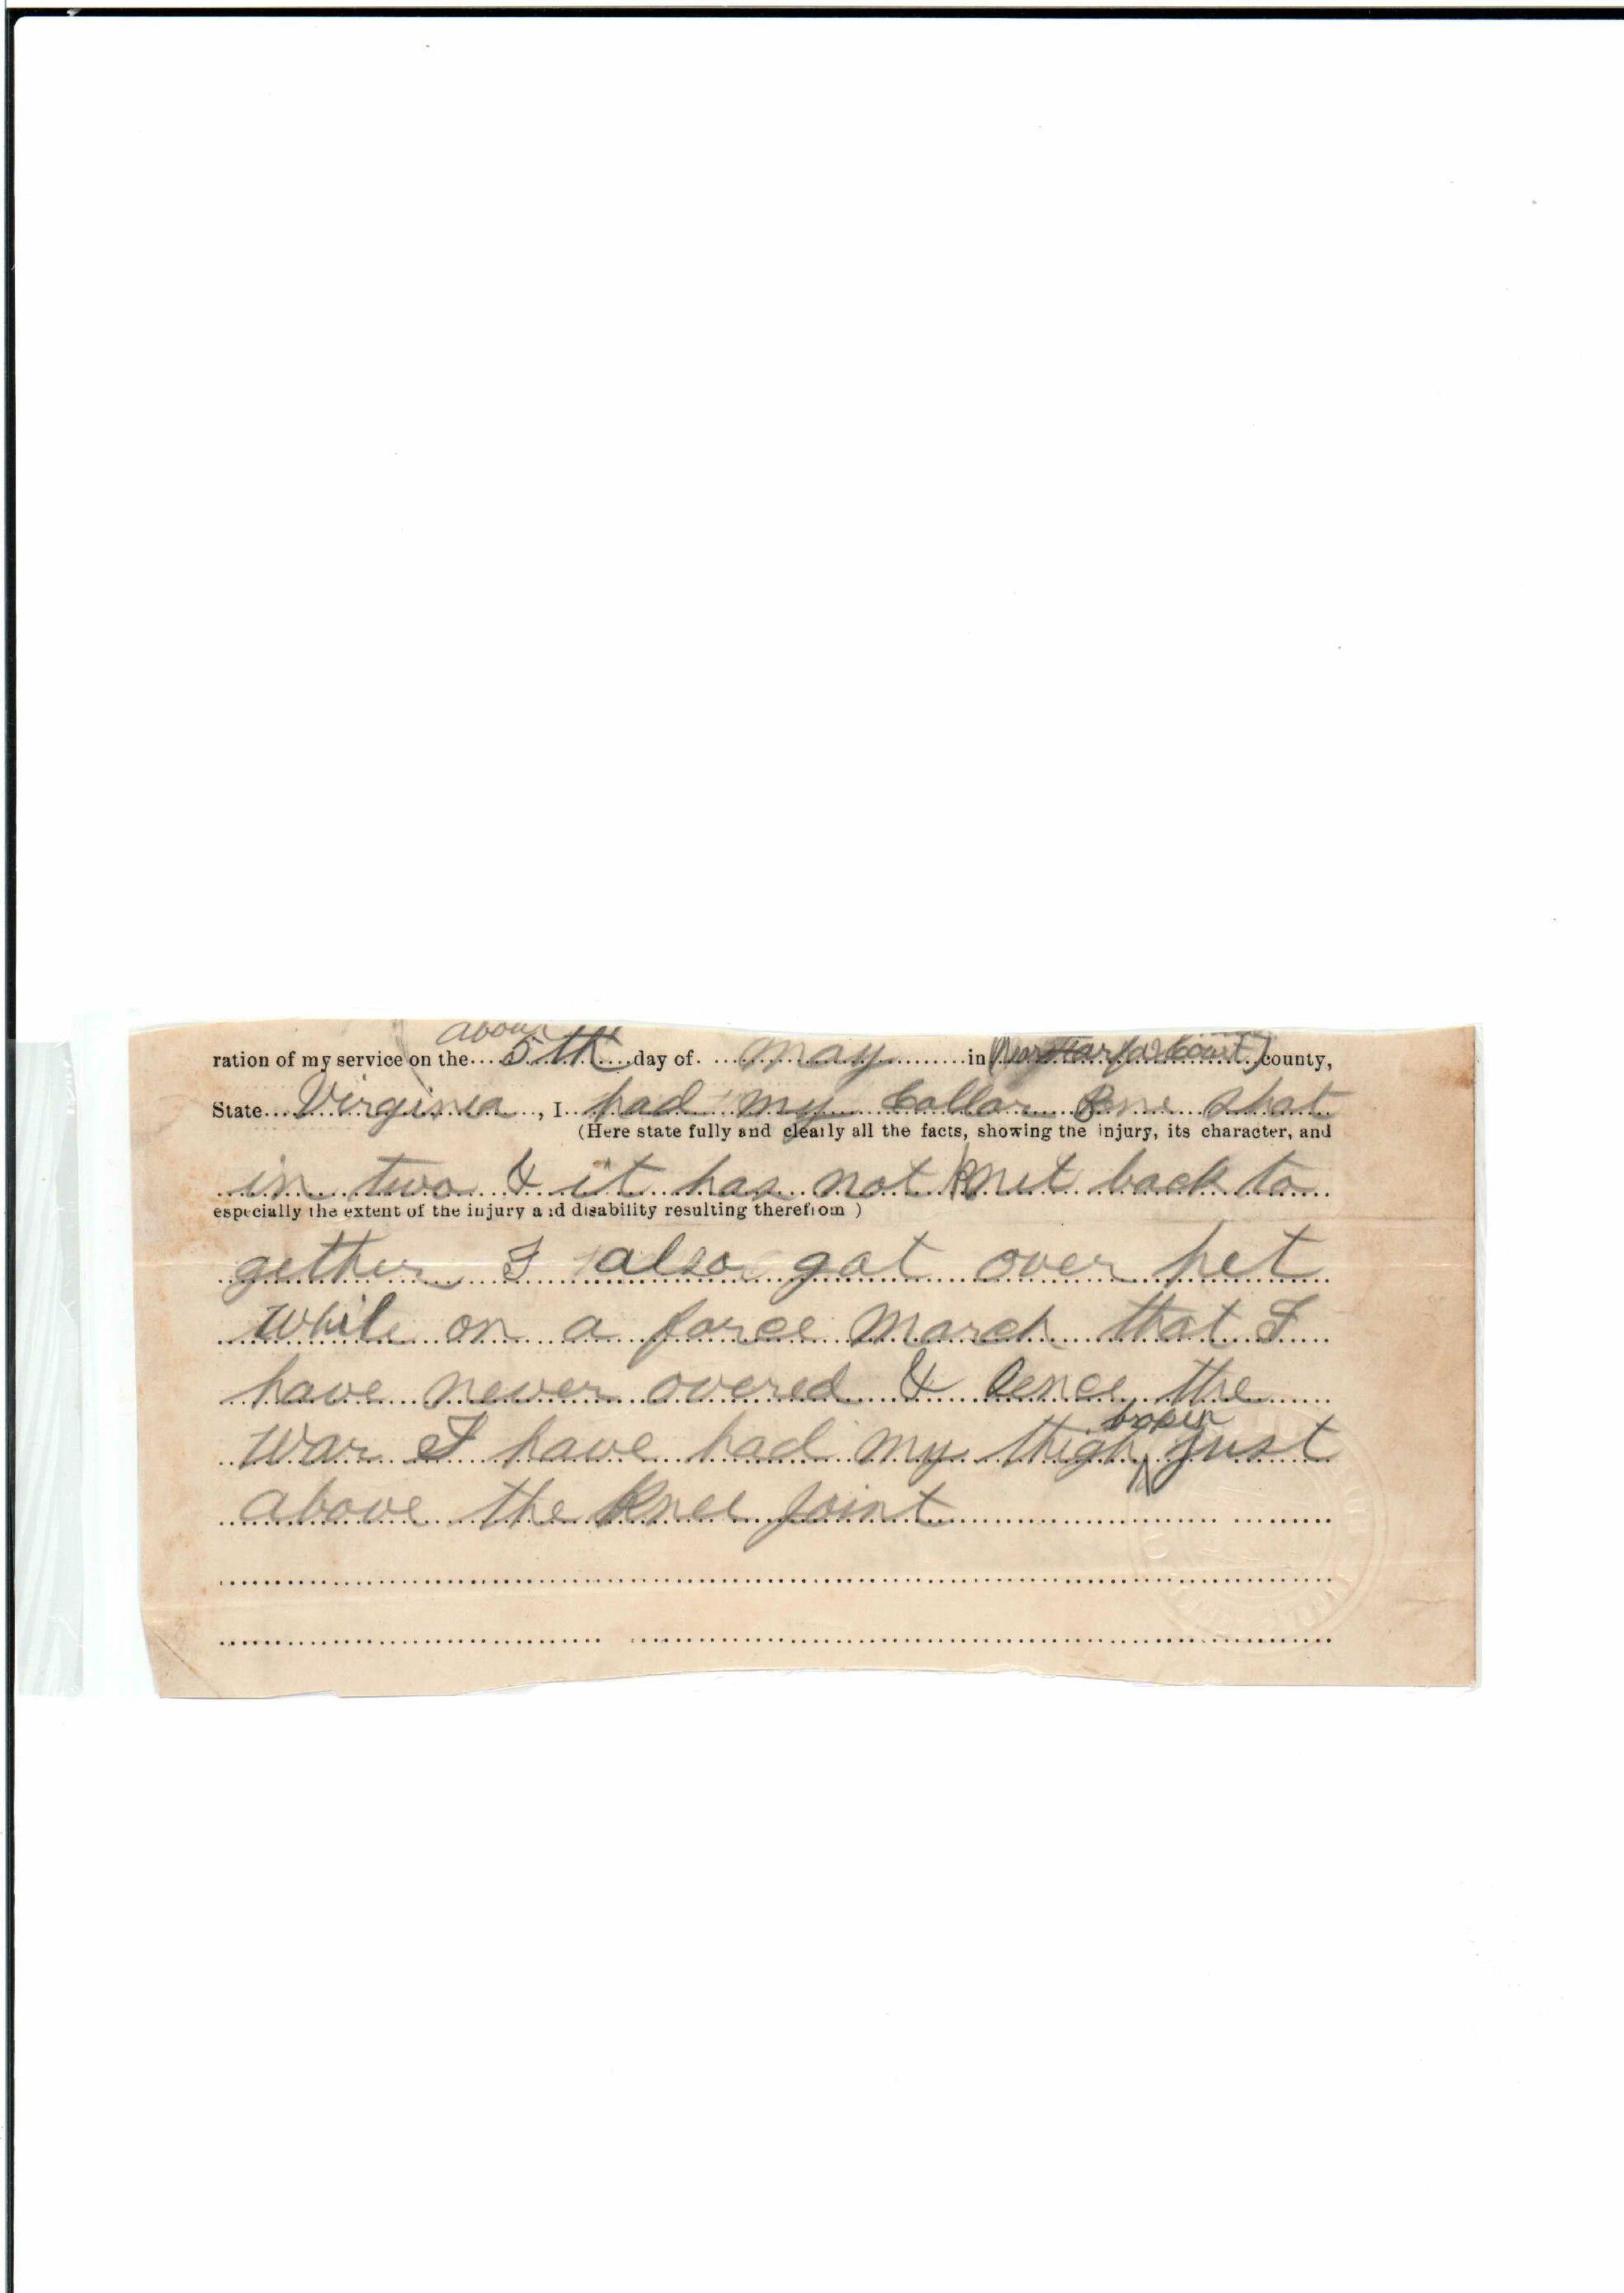 about
ration of my service on the 5th day of May in (near Court) county,
State Virginia, I had my Collar Bone shot
(Here state fully and clearly all the facts, showing the injury, its character, and
in two & it has not Knit back to
especially the extent of the injury and disability resulting therefrom )
gether I also got over het
while on a force march that I
have never overed & cence the
bopen
war I have had my thigh just
above the Knee joint